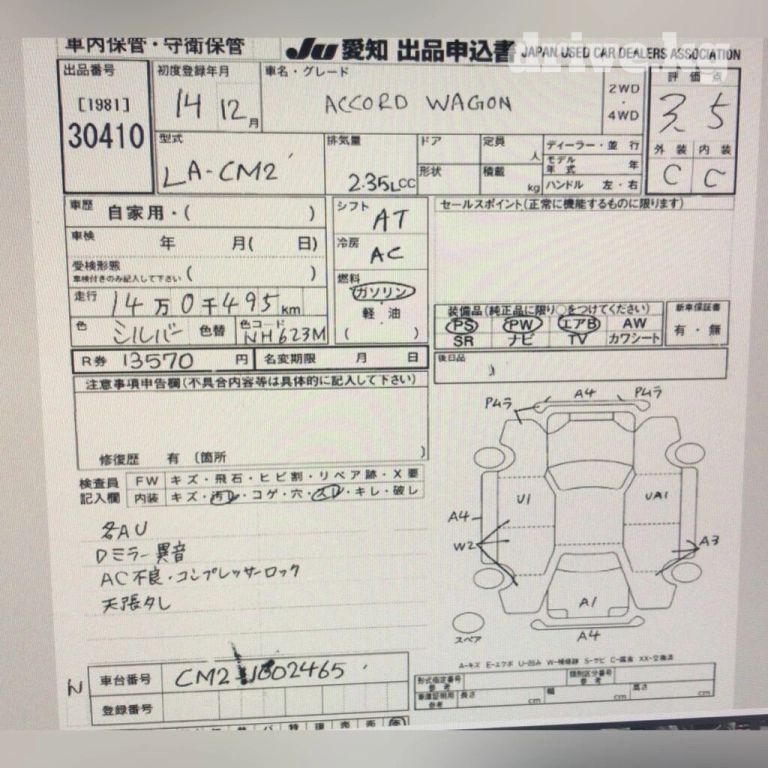 車内保管・守衛保管
JU 愛知 出品申込書 JAPAN USED CAR DEALERS ASSOCIATION
出品番号 初度登録年月 車名・グレード 2WD・4WD 評価点
[1981] 14 12月 ACCORD WAGON 3.5
30410
型式 排気量 ドア 定員 人 ディーラー・並行 外装 内装
モデル年式 年
LA-CM2 2.35L cc 形状 積載 kg ハンドル 左・右 C C
車歴 自家用・( ) シフト AT セールスポイント(正常に機能するものに限ります)
車検 年 月( 日) 冷房 AC
受検形態 ( )
車検付きのみ記入して下さい
燃料 ガソリン
走行 14万0千495km 軽油
( )
装備品(純正品に限り○をつけてください) 新車保証書
色 シルバー 色替 色コード NH623M
PS PW エアB AW 有・無
SR ナビ TV カワシート
R券 13570円 名変期限 月 日 後日品
注意事項申告欄(不具合内容等は具体的に記入して下さい)
修復歴 有 (箇所 )
検査員記入欄 FW キズ・飛石・ヒビ割・リペア跡・X要
内装 キズ・汚レ・コゲ・穴・スレ・キレ・破し
各AU
Dミラー異音
AC不良・コンプレッサーロック
天張タレ
PムラA4 Pムラ
U1 UA1
A4
W2 A3
A1
スペア A4
A-キズ E-エクボ U-凹み W-補修跡 S-サビ C-腐食 XX-交換済
N 車台番号 CM2-1002465
登録番号
形式指定番号 参考 類別区分番号 参考
車庫証明用 参考 長さ cm 幅 cm 高さ cm